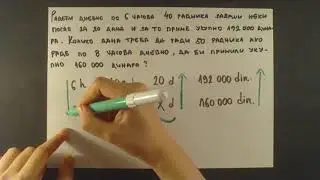 Радећи дневно по 6 часова 40 радника заврши неки
посао за 20 дана и за то приме укупно 192 000 дин.
Колико дана треба да раде 50 радника ако
раде по 8 часова дневно, да би примили уку-
пно 160 000 динара?
6 h 20 d 192 000 din.
x d 160 000 din.